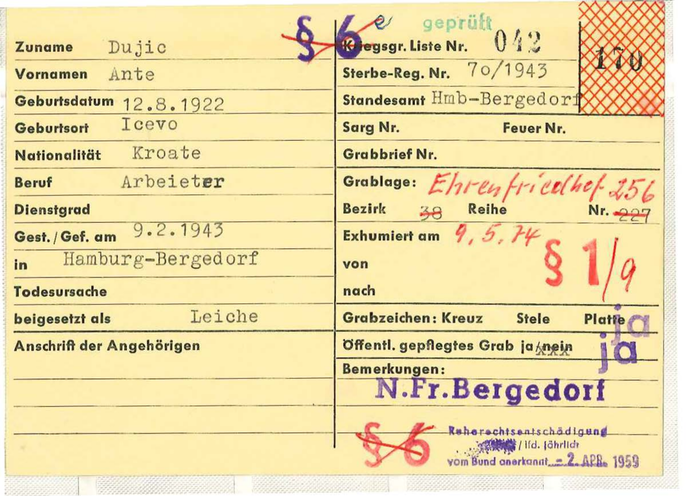 § 6 e geprüft
Zuname Dujic
Vornamen Ante
Geburtsdatum 12.8.1922
Geburtsort Icevo
Nationalität Kroate
Beruf Arbeieter
Dienstgrad
Gest./Gef. am 9.2.1943
in Hamburg-Bergedorf
Todesursache
beigesetzt als Leiche
Anschrift der Angehörigen
Kriegsgr. Liste Nr. 042
170
Sterbe-Reg. Nr. 70/1943
Standesamt Hmb-Bergedorf
Sarg Nr. Feuer Nr.
Grabbrief Nr.
Grablage: Ehrenfriedhof 256
Bezirk 38 Reihe Nr. 227
Exhumiert am 9.5.74
von § 1/9
nach
Grabzeichen: Kreuz Stele Platte ja
Öffentl. gepflegtes Grab ja/nein ja
Bemerkungen:
N.Fr.Bergedorf
§ 6
Ruherechtsentschädigung
/ lfd. jährlich
vom Bund anerkannt - 2. APR. 1959